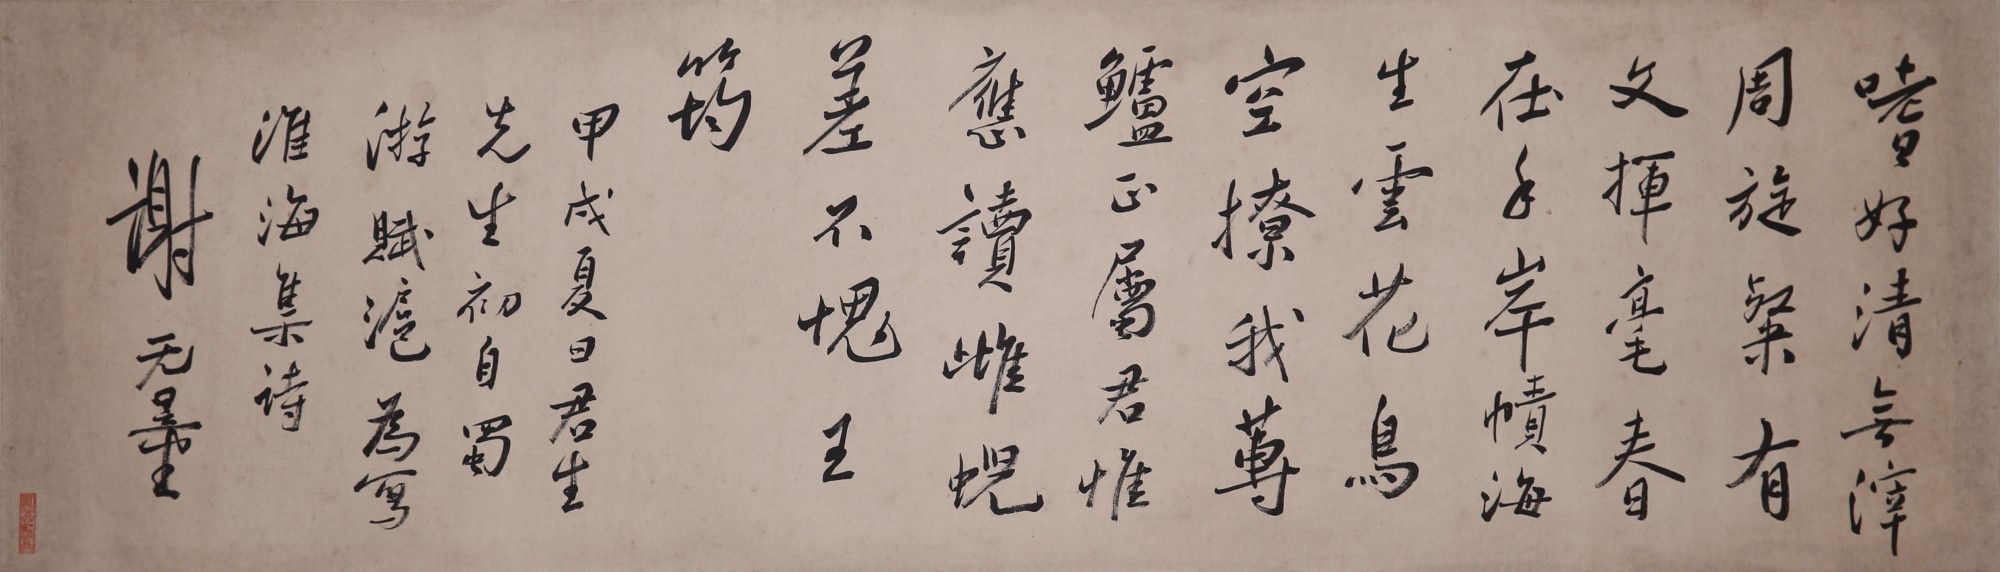 嗜好清無滓
周旋粲有
文揮毫春
在手岸幘海
生雲花鳥
空撩我蓴
鱸正屬君惟
應讀雌蜺
差不愧王
筠
甲戌夏日君生
先生初自蜀
游賦滬為寫
淮海集詩
謝无量